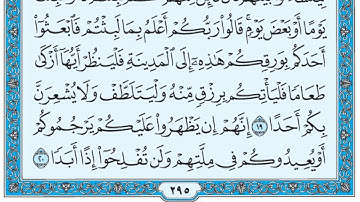 يَوْمًا أَوْ بَعْضَ يَوْمٍ ۚ قَالُوا۟ رَبُّكُمْ أَعْلَمُ بِمَا لَبِثْتُمْ فَٱبْعَثُوٓا۟
أَحَدَكُم بِوَرِقِكُمْ هَٰذِهِۦٓ إِلَى ٱلْمَدِينَةِ فَلْيَنظُرْ أَيُّهَآ أَزْكَىٰ
طَعَامًا فَلْيَأْتِكُم بِرِزْقٍ مِّنْهُ وَلْيَتَلَطَّفْ وَلَا يُشْعِرَنَّ
بِكُمْ أَحَدًا ١٩ إِنَّهُمْ إِن يَظْهَرُوا۟ عَلَيْكُمْ يَرْجُمُوكُمْ
أَوْ يُعِيدُوكُمْ فِى مِلَّتِهِمْ وَلَن تُفْلِحُوٓا۟ إِذًا أَبَدًا ٢٠
٢٩٥